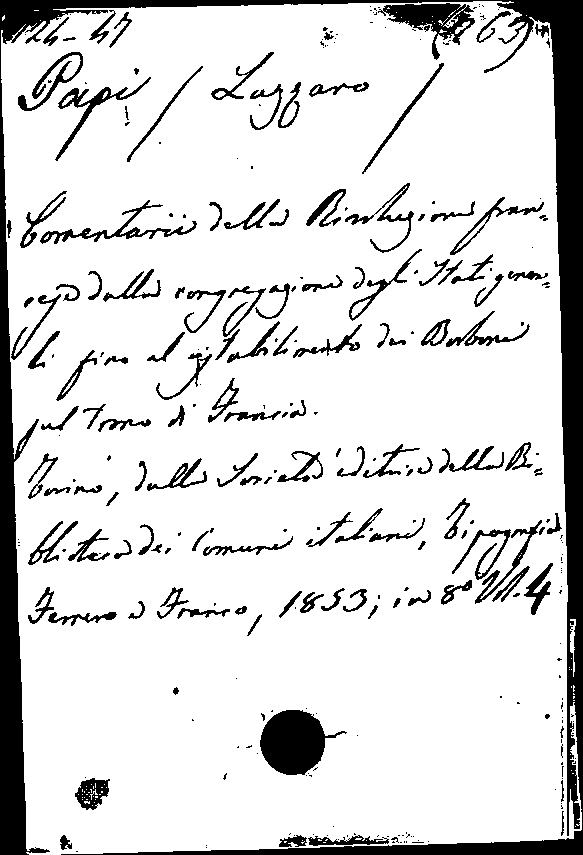 124-47 (763)
Papi / Lazzaro /
Comentarii della Rivoluzione fran-
cese dalla congregazione degli Stati genera-
li fino al ristabilimento dei Borboni
sul Trono di Francia.
Torino, dalla Società editrice della Bi-
blioteca dei Comuni italiani, Tipografia
Ferrero e Franco, 1853; in 8º Vol. 4